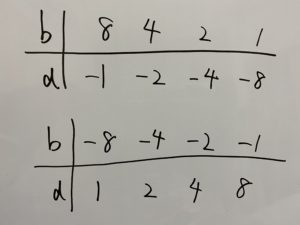 b 8 4 2 1
d -1 -2 -4 -8
b -8 -4 -2 -1
d 1 2 4 8